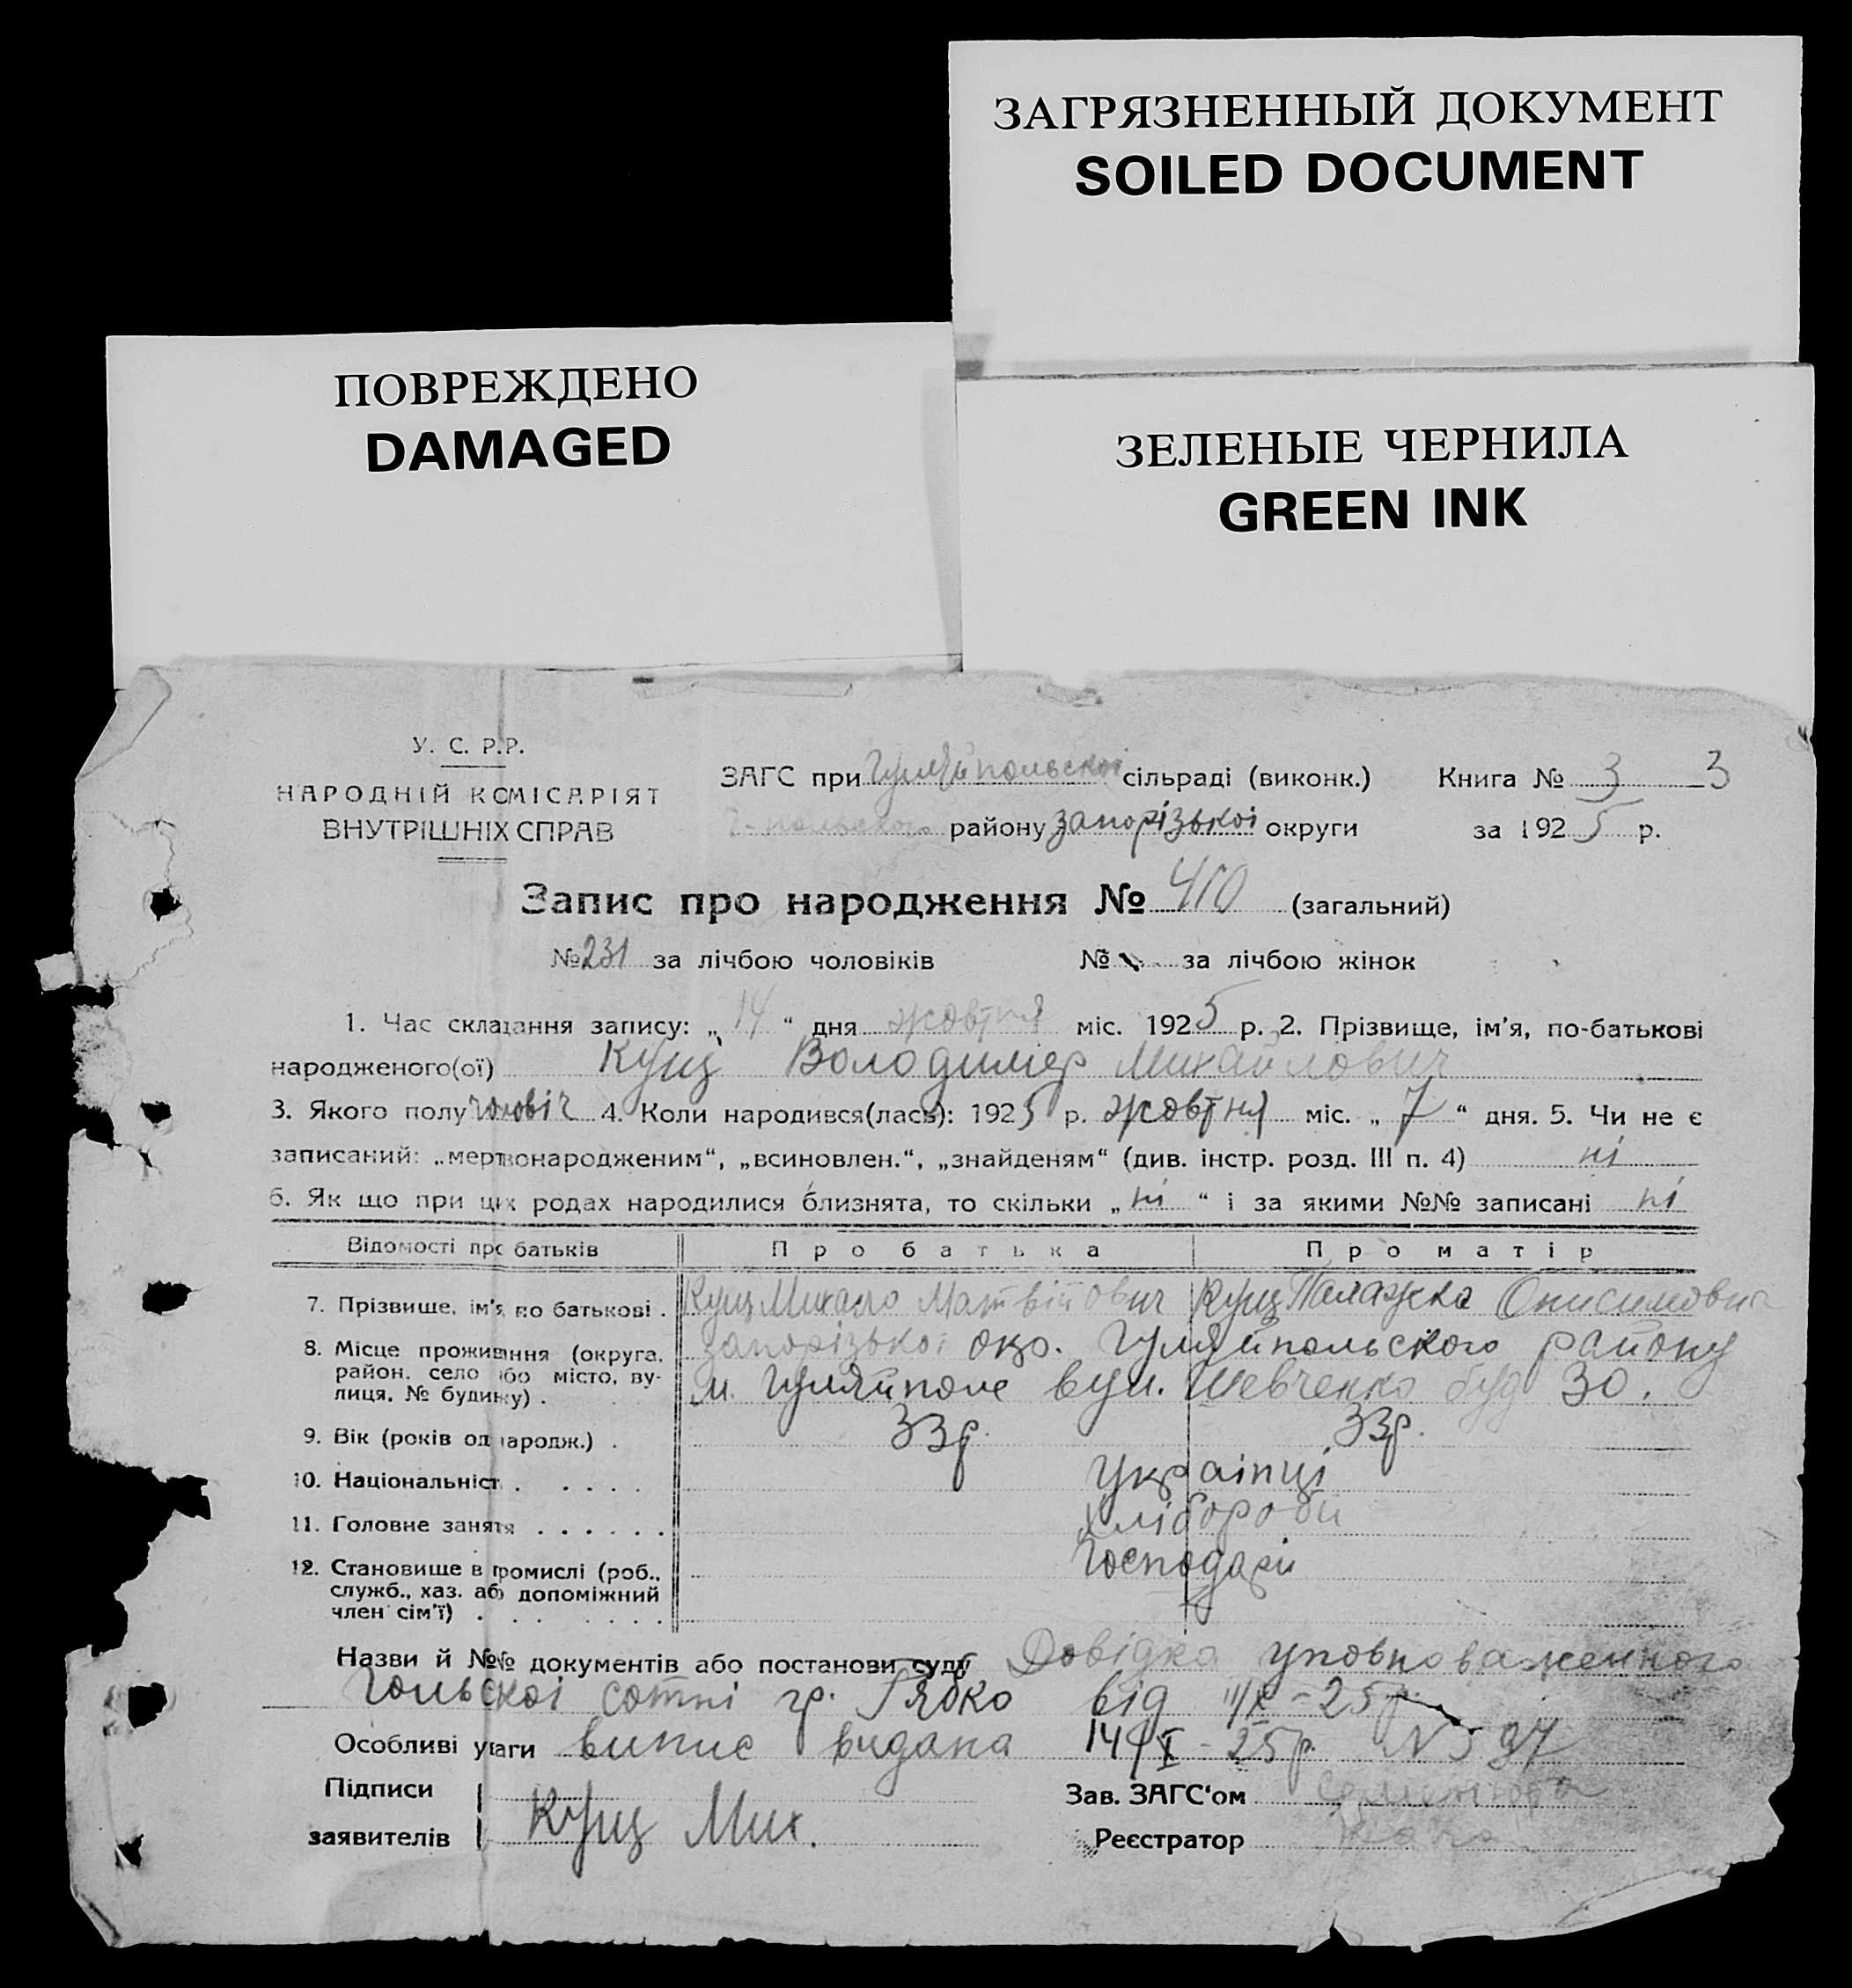 ЗАГРЯЗНЕННЫЙ ДОКУМЕНТ
SOILED DOCUMENT
ПОВРЕЖДЕНО
DAMAGED
ЗЕЛЕНЫЕ ЧЕРНИЛА
GREEN INK
У. С. Р.Р.
НАРОДНІЙ КОМІСАРІЯТ
ВНУТРІШНІХ СПРАВ
ЗАГС при Гуляйпольскої сільраді (виконк.) Книга № 3 3
Г-польского району запорізької округи за 1925 р.
Запис про народження № 410 (загальний)
№ 231 за лічбою чоловіків № за лічбою жінок
1. Час складання запису: „ 14 “ дня жовтня міс. 1925 р. 2. Прізвище, ім'я, по-батькові
народженого(ої) Кущ Володимер Михайлович
3. Якого полу чоловіч 4. Коли народився(лась): 1925 р. жовтня міс. „ 7 “ дня. 5. Чи не є
записаний: „мертвонародженим“, „всиновлен.“, „знайденям“ (див. інстр. розд. III п. 4) ні
6. Як що при цих родах народилися близнята, то скільки „ ні “ і за якими №№ записані ні
Відомості про батьків Про батька Про матір
7. Прізвише, ім'я по батькові . Кущ Михайло Матвійович Кущ Палажка Онисимовна
8. Місце проживання (округа, район, село або місто, вулиця, № будинку) . запорізької окр. Гуляйпольского району
м. Гуляйполе вул. Шевченко буд 30.
9. Вік (років од народж.) . 33р. 33р.
10. Національніст . . . . . Українці
11. Головне занятя . . . . . . хлібороби
12. Становище в промислі (роб., служб., хаз. або допоміжний член сім'ї) . . . . . . Господарі
Назви й №№ документів або постанови суду Довідка уповноваженного
Гольскої сотні гр. Рябко від 11/X-25р.
Особливі уваги випис видана 14/X-25р. № 597
Підписи
заявителів Кущ Мих.
Зав. ЗАГС'ом
Реєстратор